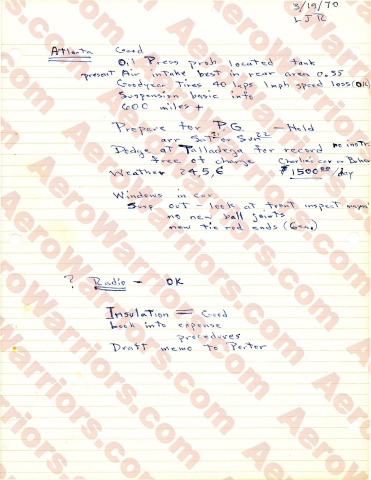 3/19/70
LJR
Atlanta Good
Oil Press prob located tank
present Air intake best in rear area 0.55
Goodyear Tires 40 laps 1mph speed loss (OK)
Suspension basic info
600 miles +
Prepare for P.G. - Held
arr Sat 21 or Sun 22
Dodge at Talladega for record no instr.
free of charge Charlie's car or
Weather 24, 5, 6 $1500.00/day
Windows in car
Susp out - look at front inspect
no new ball joints
new tie rod ends
? Radio - OK
Insulation = Good
Look into expense
procedures
Draft memo to Porter
AeroWarriors.com